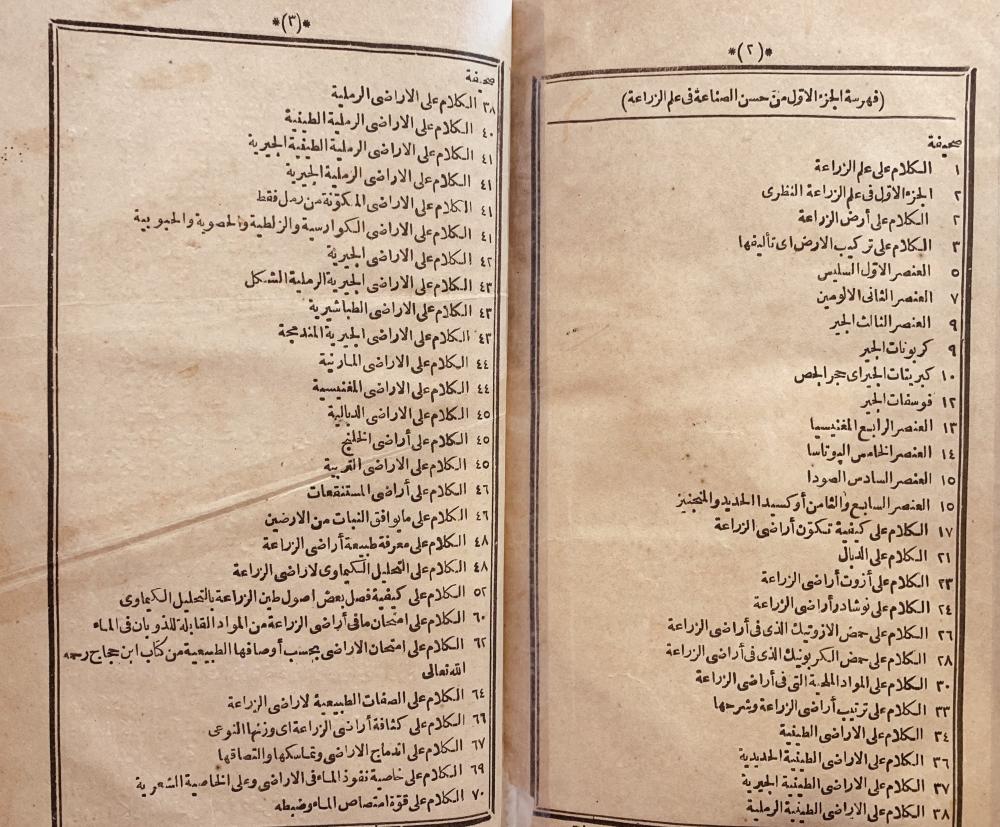 *(٢)*
(فهرسة الجزء الاول من حسن الصناعة فى علم الزراعة)
صحيفة
١ الكلام على علم الزراعة
٢ الجزء الاول فى علم الزراعة النظرى
٢ الكلام على أرض الزراعة
٣ الكلام على تركيب الارض اى تأليفها
٥ العنصر الاول السليس
٧ العنصر الثانى الالومين
٩ العنصر الثالث الجير
٩ كربونات الجير
١٠ كبريتات الجير اى حجر الجص
١٢ فوسفات الجير
١٣ العنصر الرابع المغنيسيا
١٤ العنصر الخامس البوتاسا
١٥ العنصر السادس الصودا
١٥ العنصر السابع والثامن أوكسيدا الحديد والمنجنيز
١٧ الكلام على كيفية تكون أراضى الزراعة
٢١ الكلام على الدبال
٢٣ الكلام على أزوت أراضى الزراعة
٢٤ الكلام على نوشادر أراضى الزراعة
٢٦ الكلام على حمض الازوتيك الذى فى أراضى الزراعة
٢٨ الكلام على حمض الكربونيك الذى فى أراضى الزراعة
٣٠ الكلام على المواد الملحية التى فى أراضى الزراعة
٣٣ الكلام على ترتيب أراضى الزراعة وشرحها
٣٤ الكلام على الاراضى الطينية
٣٦ الكلام على الاراضى الطينية الحديدية
٣٧ الكلام على الاراضى الطينية الجيرية
٣٨ الكلام على الاراضى الطينية الرملية
*(٣)*
صحيفة
٣٨ الكلام على الاراضى الرملية
٤٠ الكلام على الاراضى الرملية الطينية
٤١ الكلام على الاراضى الرملية الطينية الجيرية
٤١ الكلام على الاراضى الرملية الجيرية
٤١ الكلام على الاراضى المكوّنة من رمل فقط
٤١ الكلام على الاراضى الكوارسية والزلطية والحصوية والحبوبية
٤٢ الكلام على الاراضى الجيرية
٤٣ الكلام على الاراضى الجيرية الرملية الشكل
٤٣ الكلام على الاراضى الطباشيرية
٤٣ الكلام على الاراضى الجيرية المندمجة
٤٤ الكلام على الاراضى المارنية
٤٤ الكلام على الاراضى المغنيسية
٤٥ الكلام على الاراضى الدبالية
٤٥ الكلام على أراضى الخلنج
٤٥ الكلام على الاراضى التربية
٤٦ الكلام على أراضى المستنقعات
٤٦ الكلام على ما يوافق النبات من الارضين
٤٨ الكلام على معرفة طبيعة أراضى الزراعة
٤٨ الكلام على التحليل الكيماوى لاراضى الزراعة
٥٢ الكلام على كيفية فصل بعض اصول طين الزراعة بالتحليل الكيماوى
٦٠ الكلام على امتحان ما فى أراضى الزراعة من المواد القابلة للذوبان فى الماء
٦٢ الكلام على امتحان الاراضى بحسب أوصافها الطبيعية من كتاب ابن حجاج رحمه
الله تعالى
٦٤ الكلام على الصفات الطبيعية لاراضى الزراعة
٦٦ الكلام على كثافة أراضى الزراعة اى وزنها النوعى
٦٧ الكلام على اندماج الاراضى وتماسكها والتصاقها
٦٩ الكلام على خاصية نفوذ الماء فى الاراضى وعلى الخاصية الشعرية
٧٠ الكلام على قوّة امتصاص الماء وضبطه